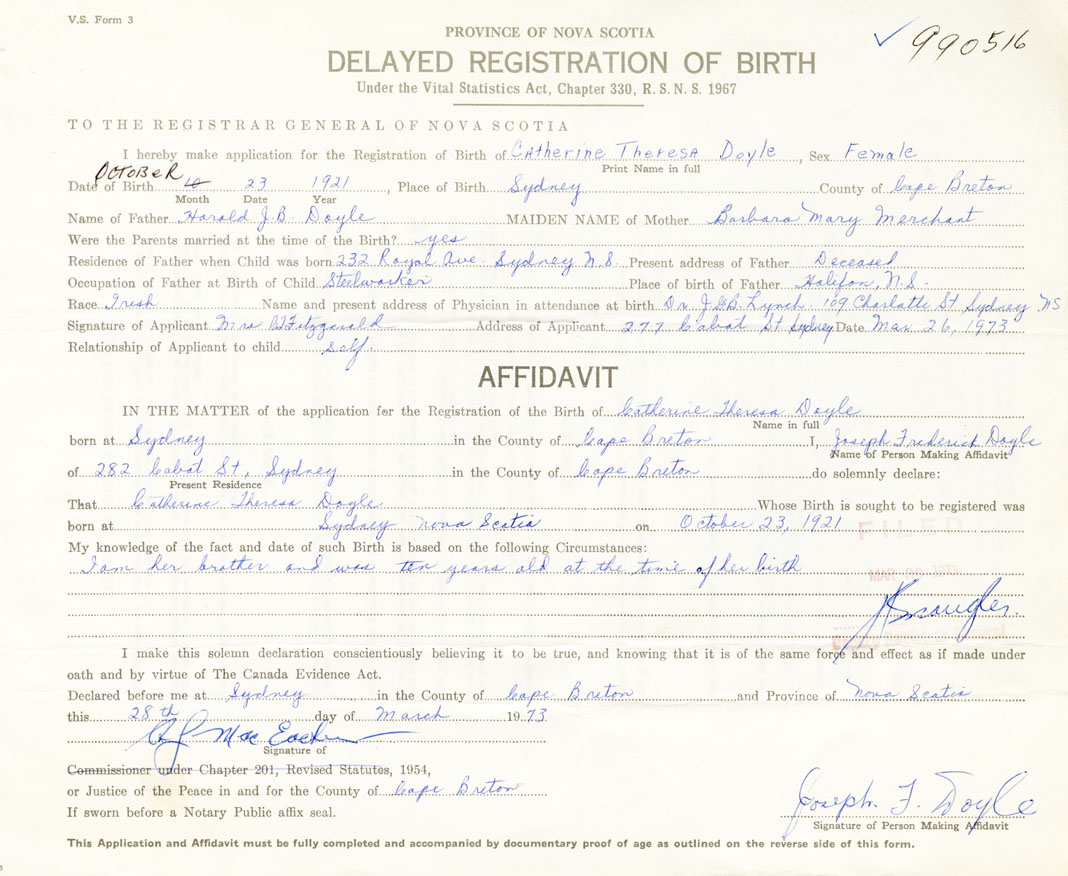 V.S. Form 3
990516
PROVINCE OF NOVA SCOTIA
DELAYED REGISTRATION OF BIRTH
Under the Vital Statistics Act, Chapter 330, R. S. N. S. 1967
TO THE REGISTRAR GENERAL OF NOVA SCOTIA
I hereby make application for the Registration of Birth of Catherine Theresa Doyle, Sex Female
Print Name in full
OCTOBER
Date of Birth 10 23 1921, Place of Birth Sydney County of Cape Breton
Month Date Year
Name of Father Harold J.B. Doyle MAIDEN NAME of Mother Barbara Mary Merchant
Were the Parents married at the time of the Birth? yes
Residence of Father when Child was born 232 Royal Ave. Sydney N.S. Present address of Father Deceased
Occupation of Father at Birth of Child Steelworker Place of birth of Father Halifax, N.S.
Race Irish Name and present address of Physician in attendance at birth Dr. J.G.B. Lynch. 109 Charlotte St Sydney NS
Signature of Applicant Mrs Fitzgerald Address of Applicant 277 Cabot St Sydney Date Mar. 26, 1973
Relationship of Applicant to child self.
AFFIDAVIT
IN THE MATTER of the application for the Registration of the Birth of Catherine Theresa Doyle
Name in full
born at Sydney in the County of Cape Breton I, Joseph Frederick Doyle
Name of Person Making Affidavit
of 282 Cabot St, Sydney in the County of Cape Breton do solemnly declare:
Present Residence
That Catherine Theresa Doyle Whose Birth is sought to be registered was
born at Sydney Nova Scotia on October 23, 1921
FILED
My knowledge of the fact and date of such Birth is based on the following Circumstances:
I am her brother and was ten years old at the time of her birth
MAR 1973
I make this solemn declaration conscientiously believing it to be true, and knowing that it is of the same force and effect as if made under
oath and by virtue of The Canada Evidence Act.
Declared before me at Sydney in the County of Cape Breton and Province of Nova Scotia
this 28th day of March 1973
Mac Eachern
Signature of
Commissioner under Chapter 201, Revised Statutes, 1954,
or Justice of the Peace in and for the County of Cape Breton
If sworn before a Notary Public affix seal.
Joseph F. Doyle
Signature of Person Making Affidavit
This Application and Affidavit must be fully completed and accompanied by documentary proof of age as outlined on the reverse side of this form.